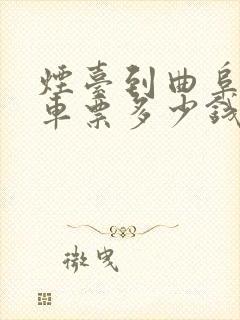 煙臺到曲阜
車票多少錢
微曳